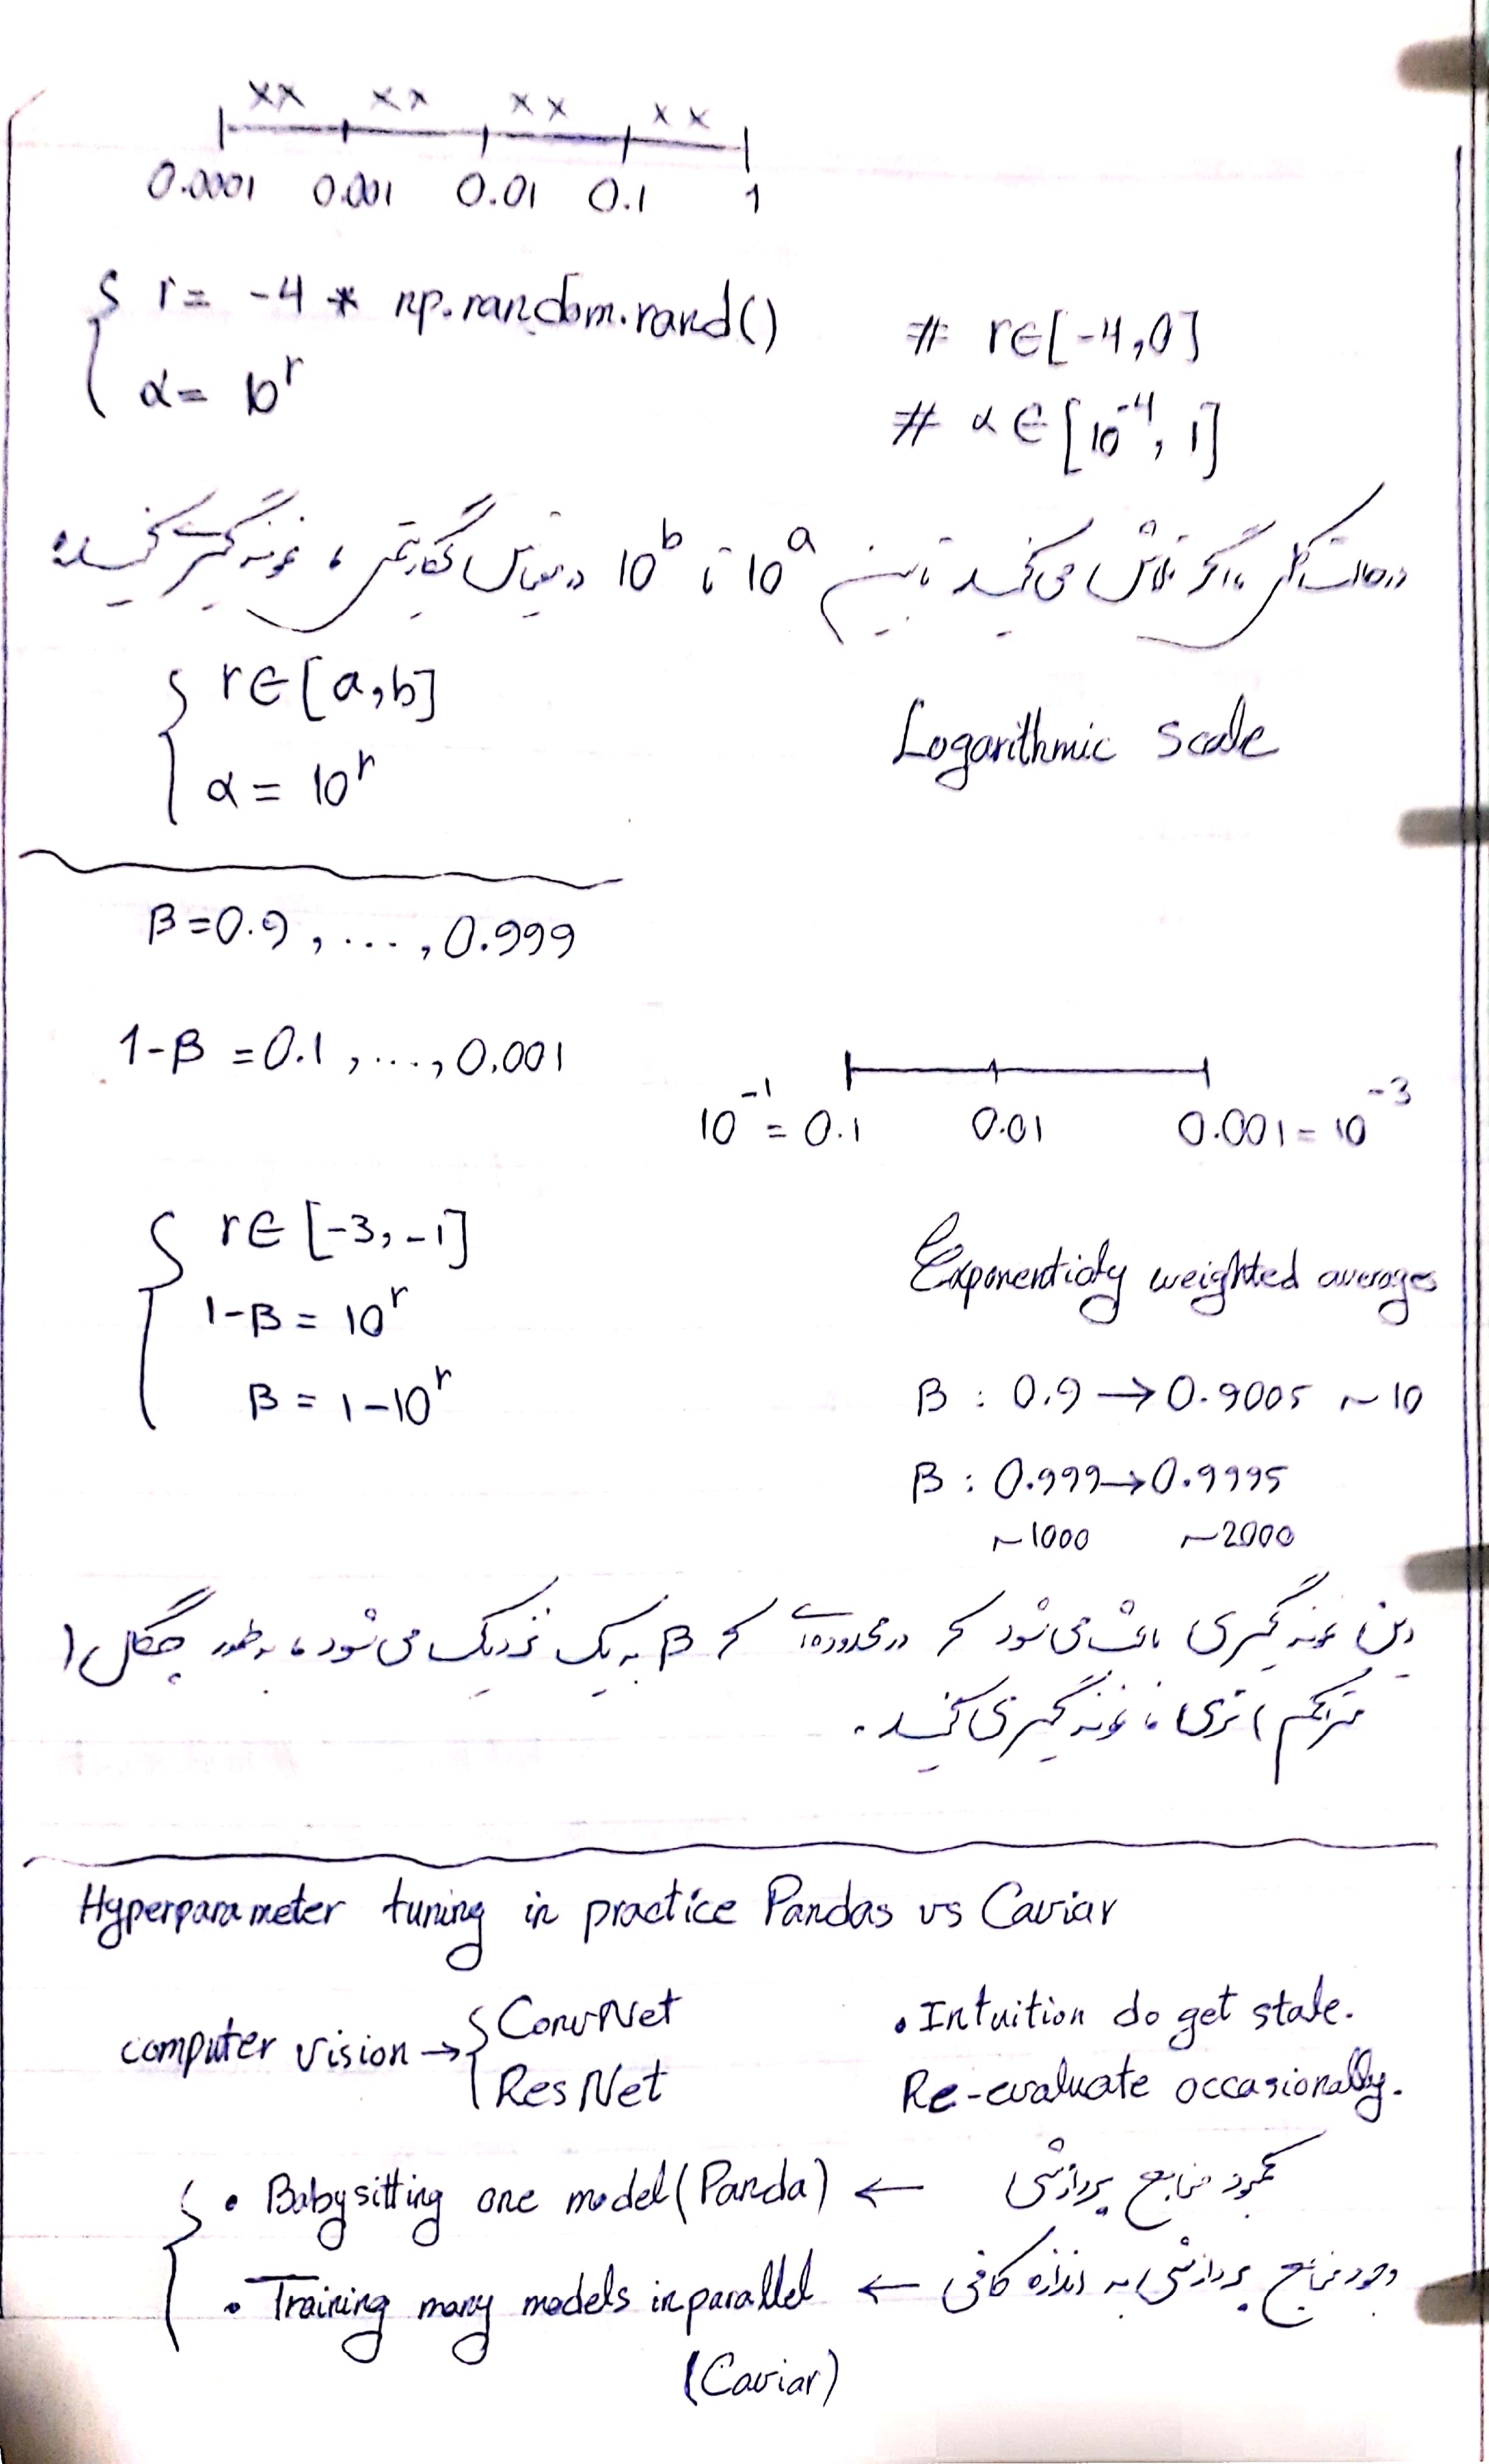 xx xx xx xx
0.0001 0.001 0.01 0.1 1
r = -4 * np.random.rand() # r∈[-4,0]
α = 10^r # α∈[10^-4, 1]
درحالت کلی، اگر تلاش می‌کنید تا بین 10^a تا 10^b در مقیاس لگاریتمی، نمونه‌گیری کنید:
r∈[a,b]
α = 10^r
Logarithmic scale
β=0.9, ...., 0.999
1-β = 0.1, ...., 0.001
10^-1 = 0.1 0.01 0.001 = 10^-3
r∈[-3,-1]
1-β = 10^r
β = 1-10^r
Exponentialy weighted averages
β : 0.9 → 0.9005 ~ 10
β : 0.999 → 0.9995
~1000 ~2000
این نمونه‌گیری باعث می‌شود که در محدوده‌ای که β به یک نزدیک می‌شود، به طور چگال (
متراکم) تری، نمونه‌گیری کنید.
Hyperparameter tuning in practice Pandas vs Caviar
computer vision → ConvNet
ResNet
• Intuition do get stale.
Re-evaluate occasionally.
• Babysitting one model (Panda) ← کمبود منابع پردازشی
• Training many models in parallel ← وجود منابع پردازشی به اندازه کافی
(Caviar)